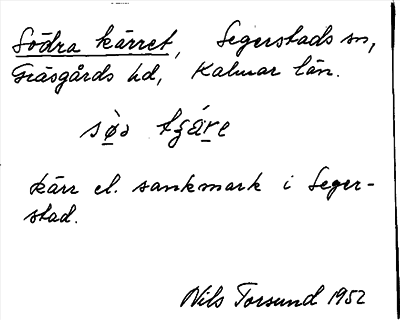 Södra kärret, Segerstads sn,
Gräsgårds hd, Kalmar län.
kärr el. sankmark i Seger-
stad.
Nils Torsund 1952